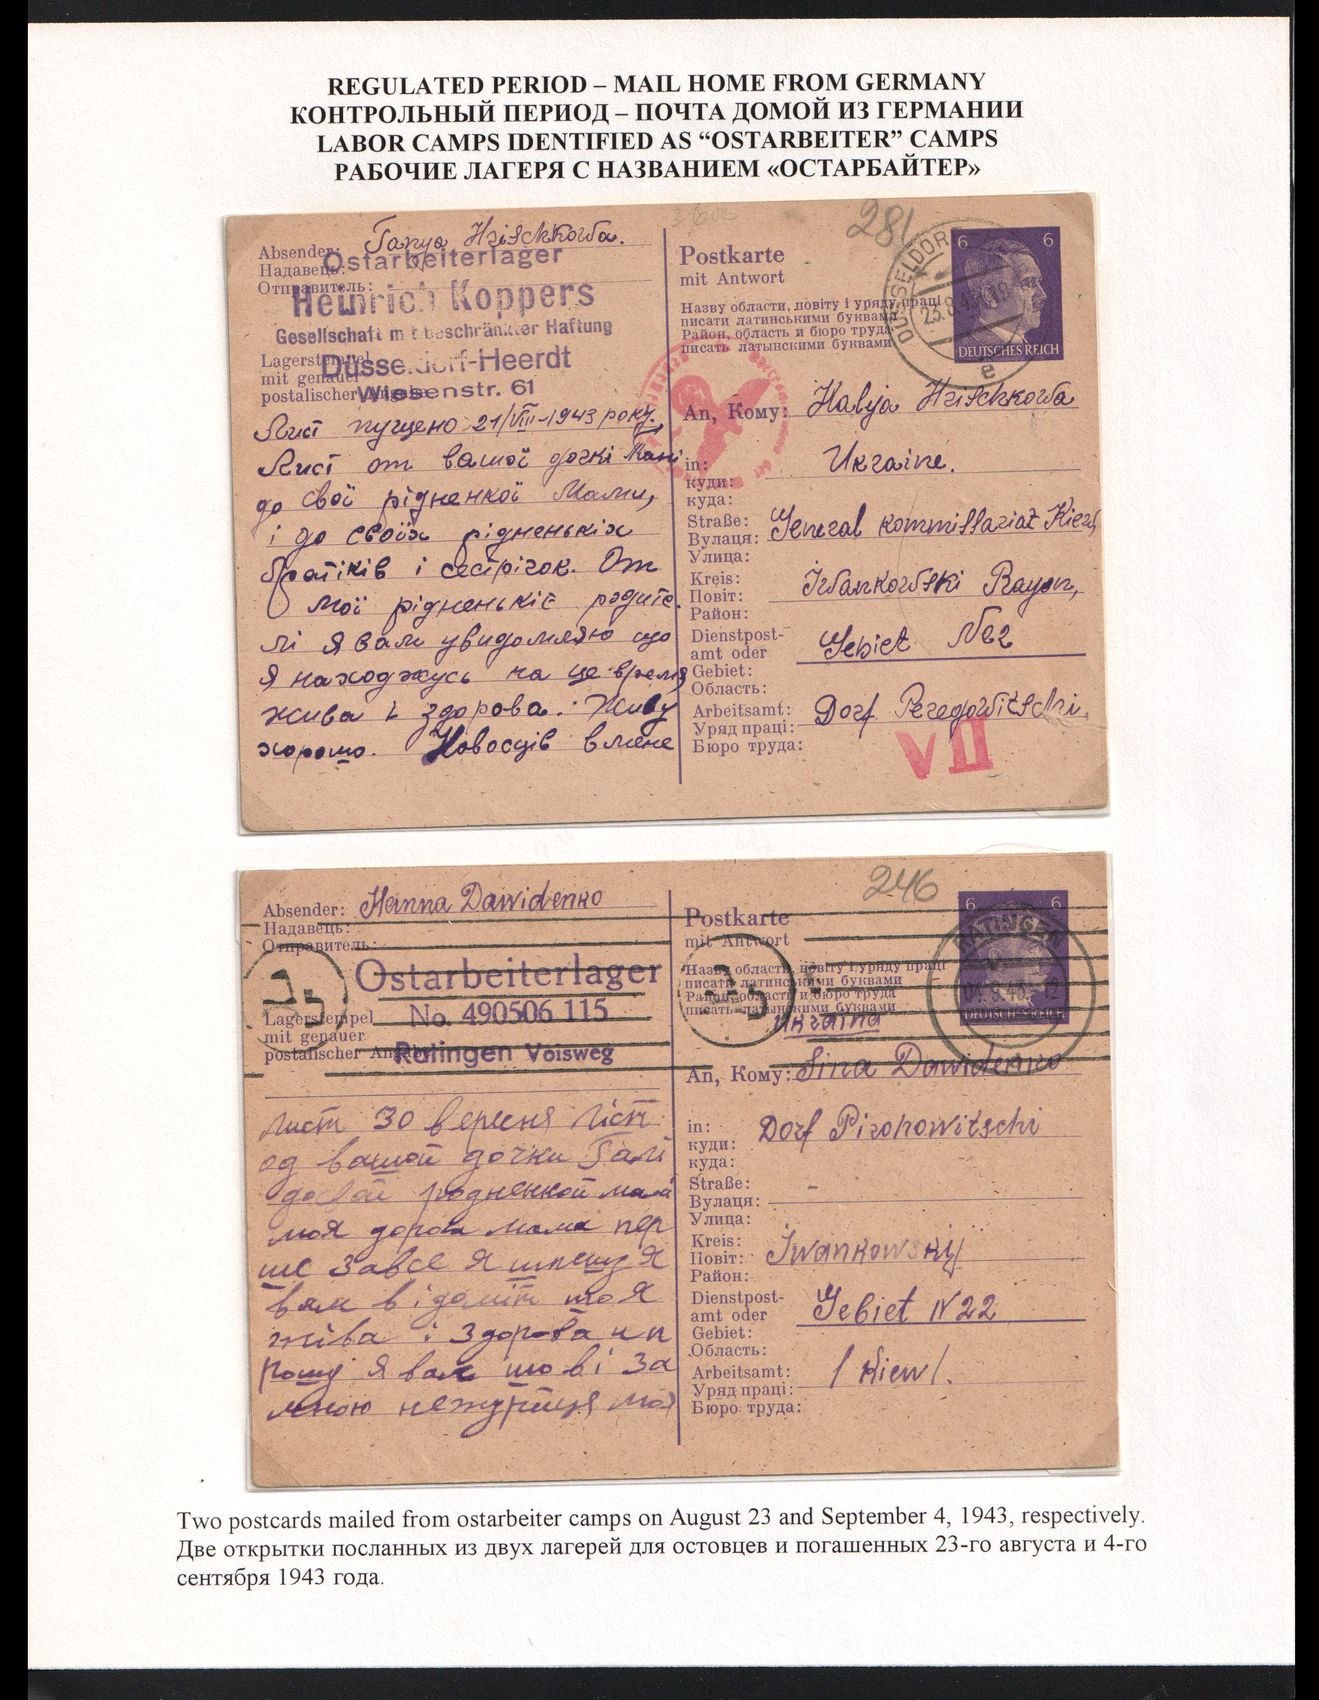 REGULATED PERIOD – MAIL HOME FROM GERMANY
КОНТРОЛЬНЫЙ ПЕРИОД – ПОЧТА ДОМОЙ ИЗ ГЕРМАНИИ
LABOR CAMPS IDENTIFIED AS “OSTARBEITER” CAMPS
РАБОЧИЕ ЛАГЕРЯ С НАЗВАНИЕМ «ОСТАРБАЙТЕР»
Absender: Tanya Hrischkowa.
Надавець:
Отправитель:
Ostarbeiterlager
Heinrich Koppers
Gesellschaft mit beschränkter Haftung
Düsseldorf-Heerdt
Wiesenstr. 61
Lagerstempel
mit genauer
postalischer Angabe
Лист пущено 21/VIII-1943 року.
Лист от вашої дочкі Тані
до свої рідненкої Мами,
і до своїх рідненькіх
братіків і сестрічок. От
мої рідненькіє родите
лі я вам увидомляю що
я находжусь на це время
жива і здорова. Живу
хорошо. Новосців в мене
281
Postkarte
mit Antwort
Назву области, повіту і уряду праці
писати латинськими буквами
Район, область и бюро труда
писать латынскими буквами
DÜSSELDORF
23.8.43
e
6 6
DEUTSCHES REICH
An, Кому: Halja Hrischkowa
in: Ukraine.
куди:
куда:
Straße: General kommissariat Kiew
Вулаця:
Улица:
Kreis: Iwankowski Rayon,
Повіт:
Район:
Dienstpost-
amt oder Gebiet №22
Gebiet:
Область:
Arbeitsamt: Dorf Peregowitschi.
Уряд праці:
Бюро труда:
VII
Absender: Hanna Dawidenko
Надавець:
Отправитель:
Ostarbeiterlager
No. 490506 115
Ratingen Voisweg
Lagerstempel
mit genauer
postalischer Angabe
Лист 30 вересня Ліст
од вашой дочки Галі
до свой родненкой мами
моя дорога мама пер
ше завсе я спешу я
вам відоміт шо я
жіва і здорова и п
рошу я вас шо ві за
мною нежуріця моя
246
Postkarte
mit Antwort
Назву области, повіту і уряду праці
писати латинськими буквами
Район, область и бюро труда
писать латынскими буквами
RATINGEN
6 6
DEUTSCHES REICH
Ukraina
An, Кому: Sina Dawidenko
in: Dorf Piropowitschi
куди:
куда:
Straße: -
Вулаця:
Улица:
Kreis: Iwankowskij
Повіт:
Район:
Dienstpost-
amt oder Gebiet N 22
Gebiet:
Область:
Arbeitsamt: / Kiew /.
Уряд праці:
Бюро труда:
Two postcards mailed from ostarbeiter camps on August 23 and September 4, 1943, respectively.
Две открытки посланных из двух лагерей для остовцев и погашенных 23-го августа и 4-го
сентября 1943 года.